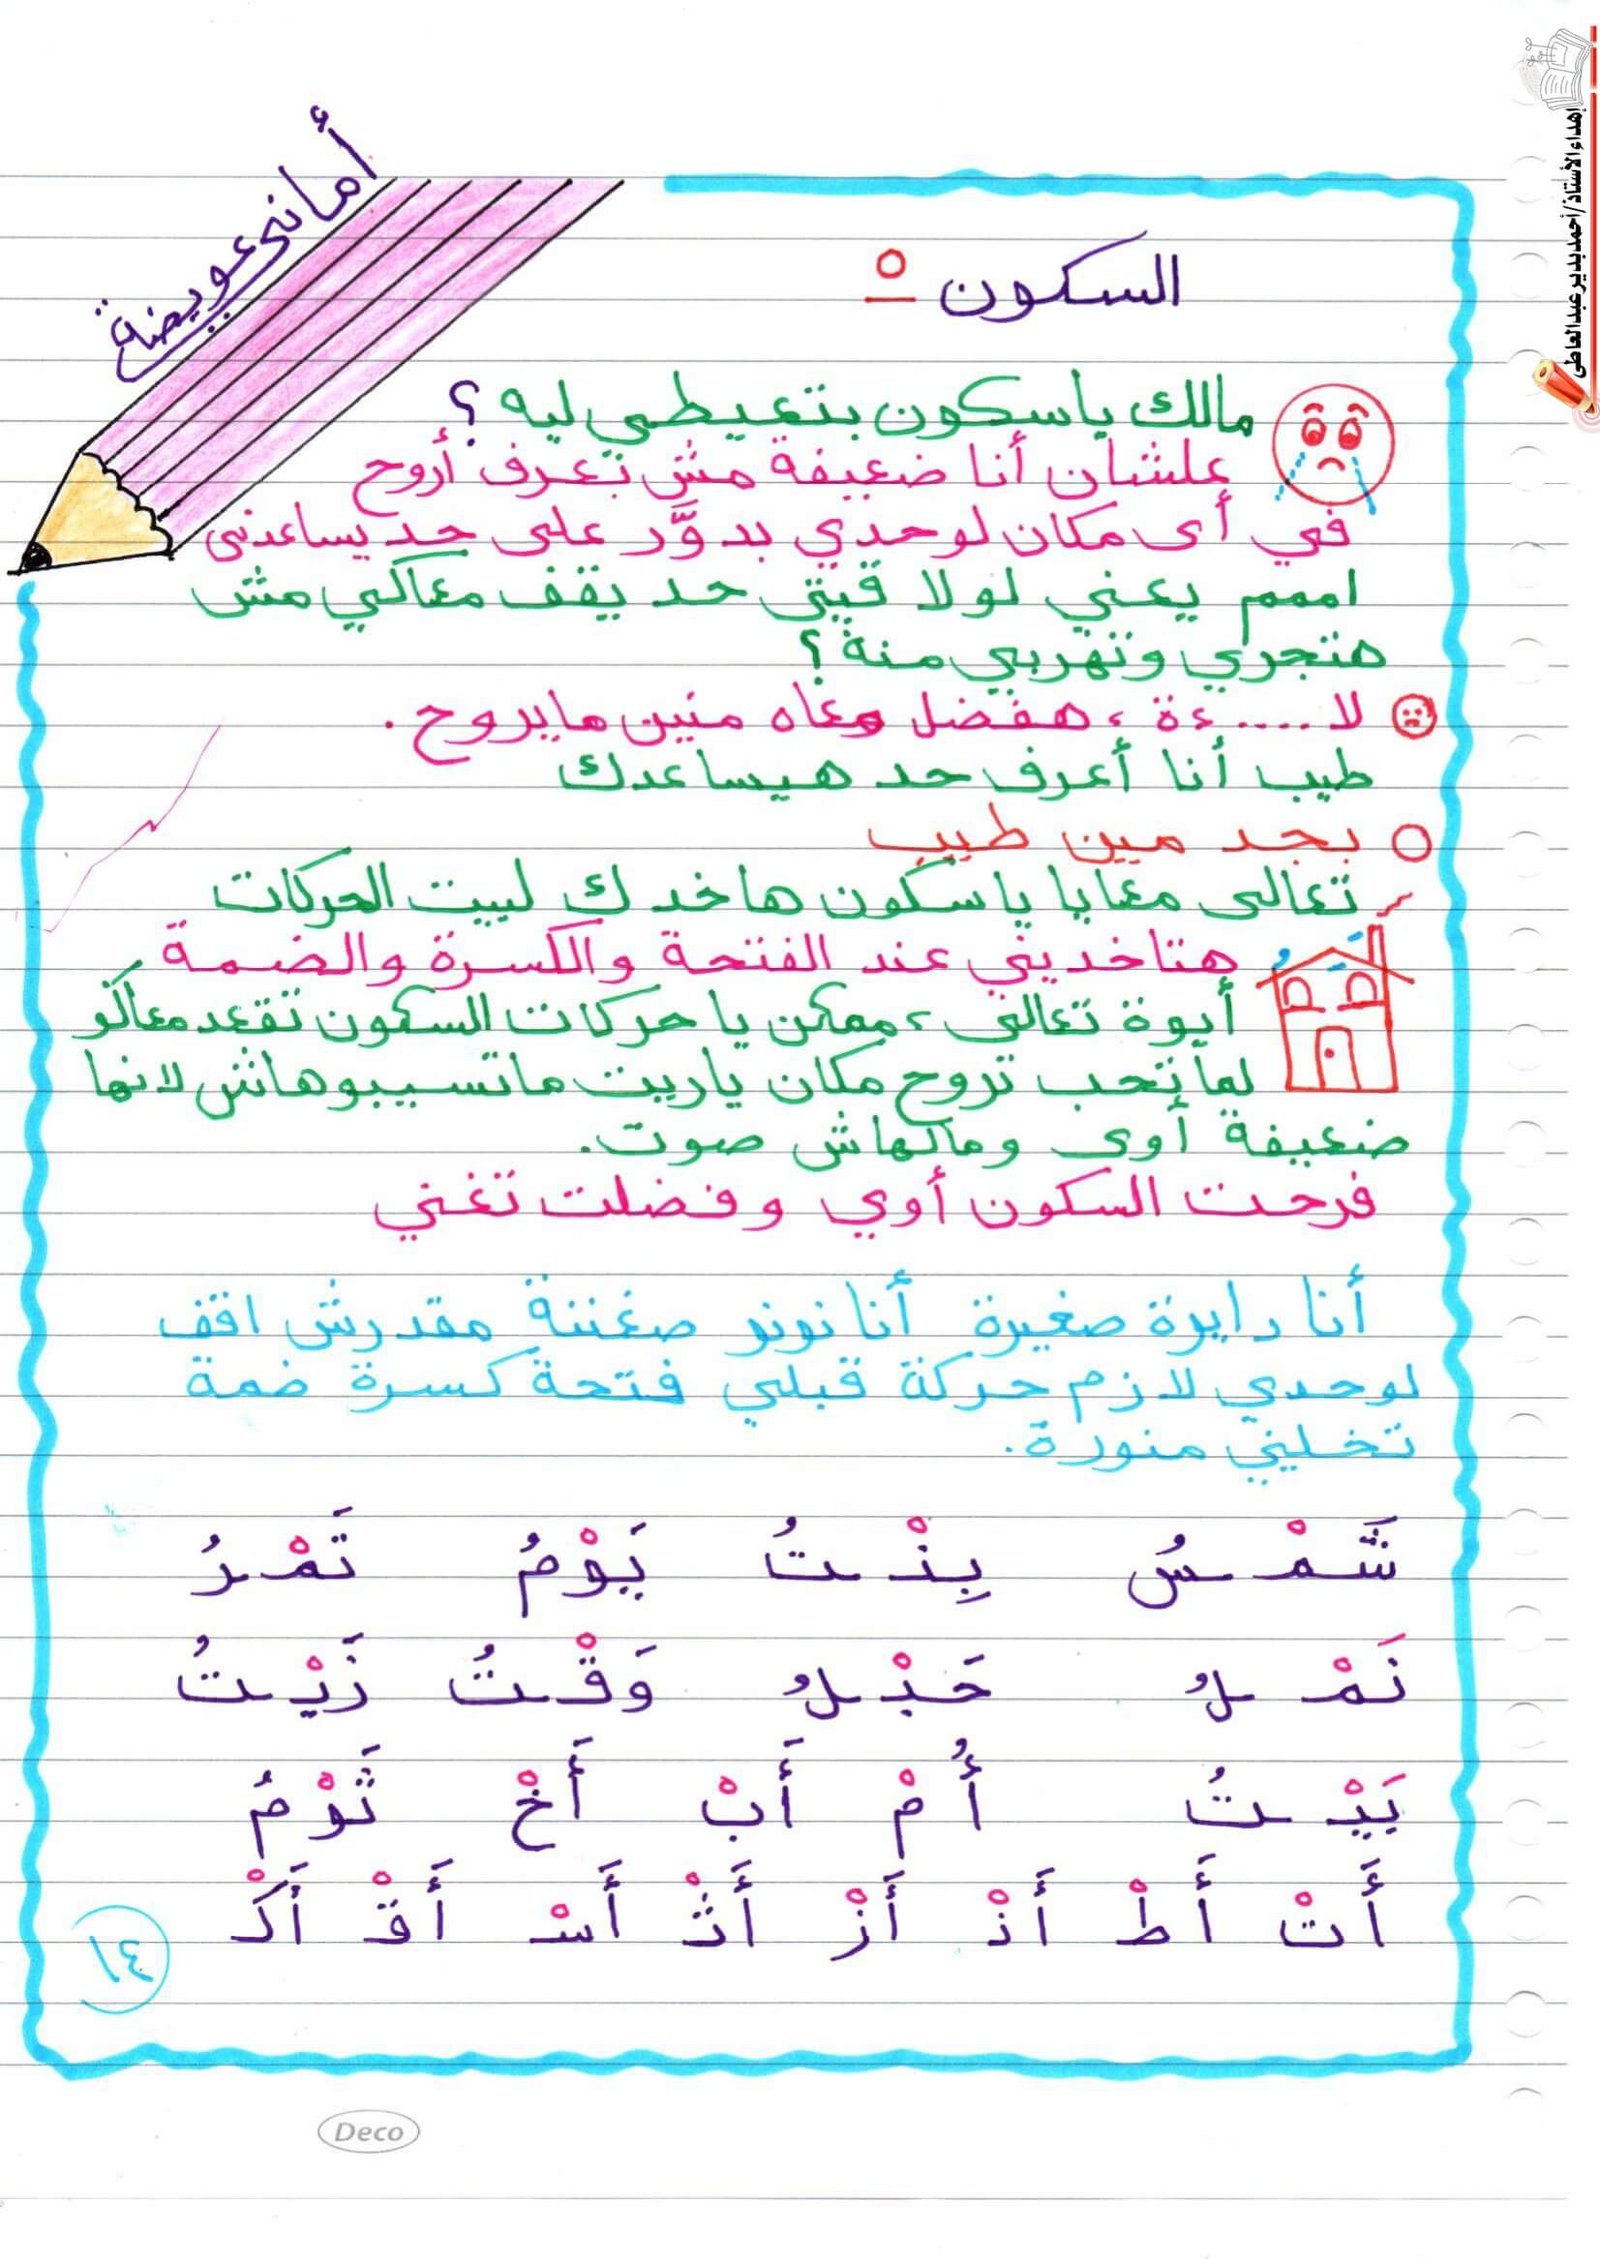 إهداء الأستاذ/أحمد بدير عبدالعاطى
أمانى عويضة
السكون ْ
مالك ياسكون بتعيطي ليه ؟
علشان أنا ضعيفة مش بعرف أروح
في أى مكان لوحدي بدوَّر على حد يساعدنى
امممم يعني لولا قيتي حد يقف معاكي مش
هتجري وتهربي منة؟
لا.....ءة ، هفضل معاه منين مايروح .
طيب أنا أعرف حد هيساعدك
بجد مين طيب
تعالى معايا ياسكون هاخدك لبيت الحركات
هتاخديني عند الفتحة والكسرة والضمة
أيوة تعالي ، ممكن يا حركات السكون تقعد معاكو
لما تحب تروح مكان ياريت ماتسيبوهاش لانها
ضعيفة أوى ومالهاش صوت.
فرحت السكون أوي وفضلت تغني
أنا دايرة صغيرة أنا نونو صغننة مقدرش اقف
لوحدي لازم حركة قبلي فتحة كسرة ضمة
تخليني منورة.
شَّمْسُ بِنْتُ يَوْمُ تَمْرُ
نَمْلُ حَبْلُ وَقْتُ زَيْتُ
بَيْتُ أُمْ أَبْ أَخْ ثَوْمُ
أَتْ أَطْ أَذْ أَزْ أَثْ أَسْ أَقْ أَكْ
١٤
Deco